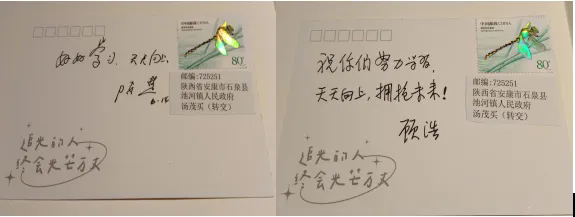 80分
好好学习、天天向上.
6.10
邮编:725251
陕西省安康市石泉县
池河镇人民政府
汤茂买（转交）
追光的人
终会光芒万丈
80分
祝你们努力学习，
天天向上，拥抱未来！
顾浩
邮编:725251
陕西省安康市石泉县
池河镇人民政府
汤茂买（转交）
追光的人
终会光芒万丈